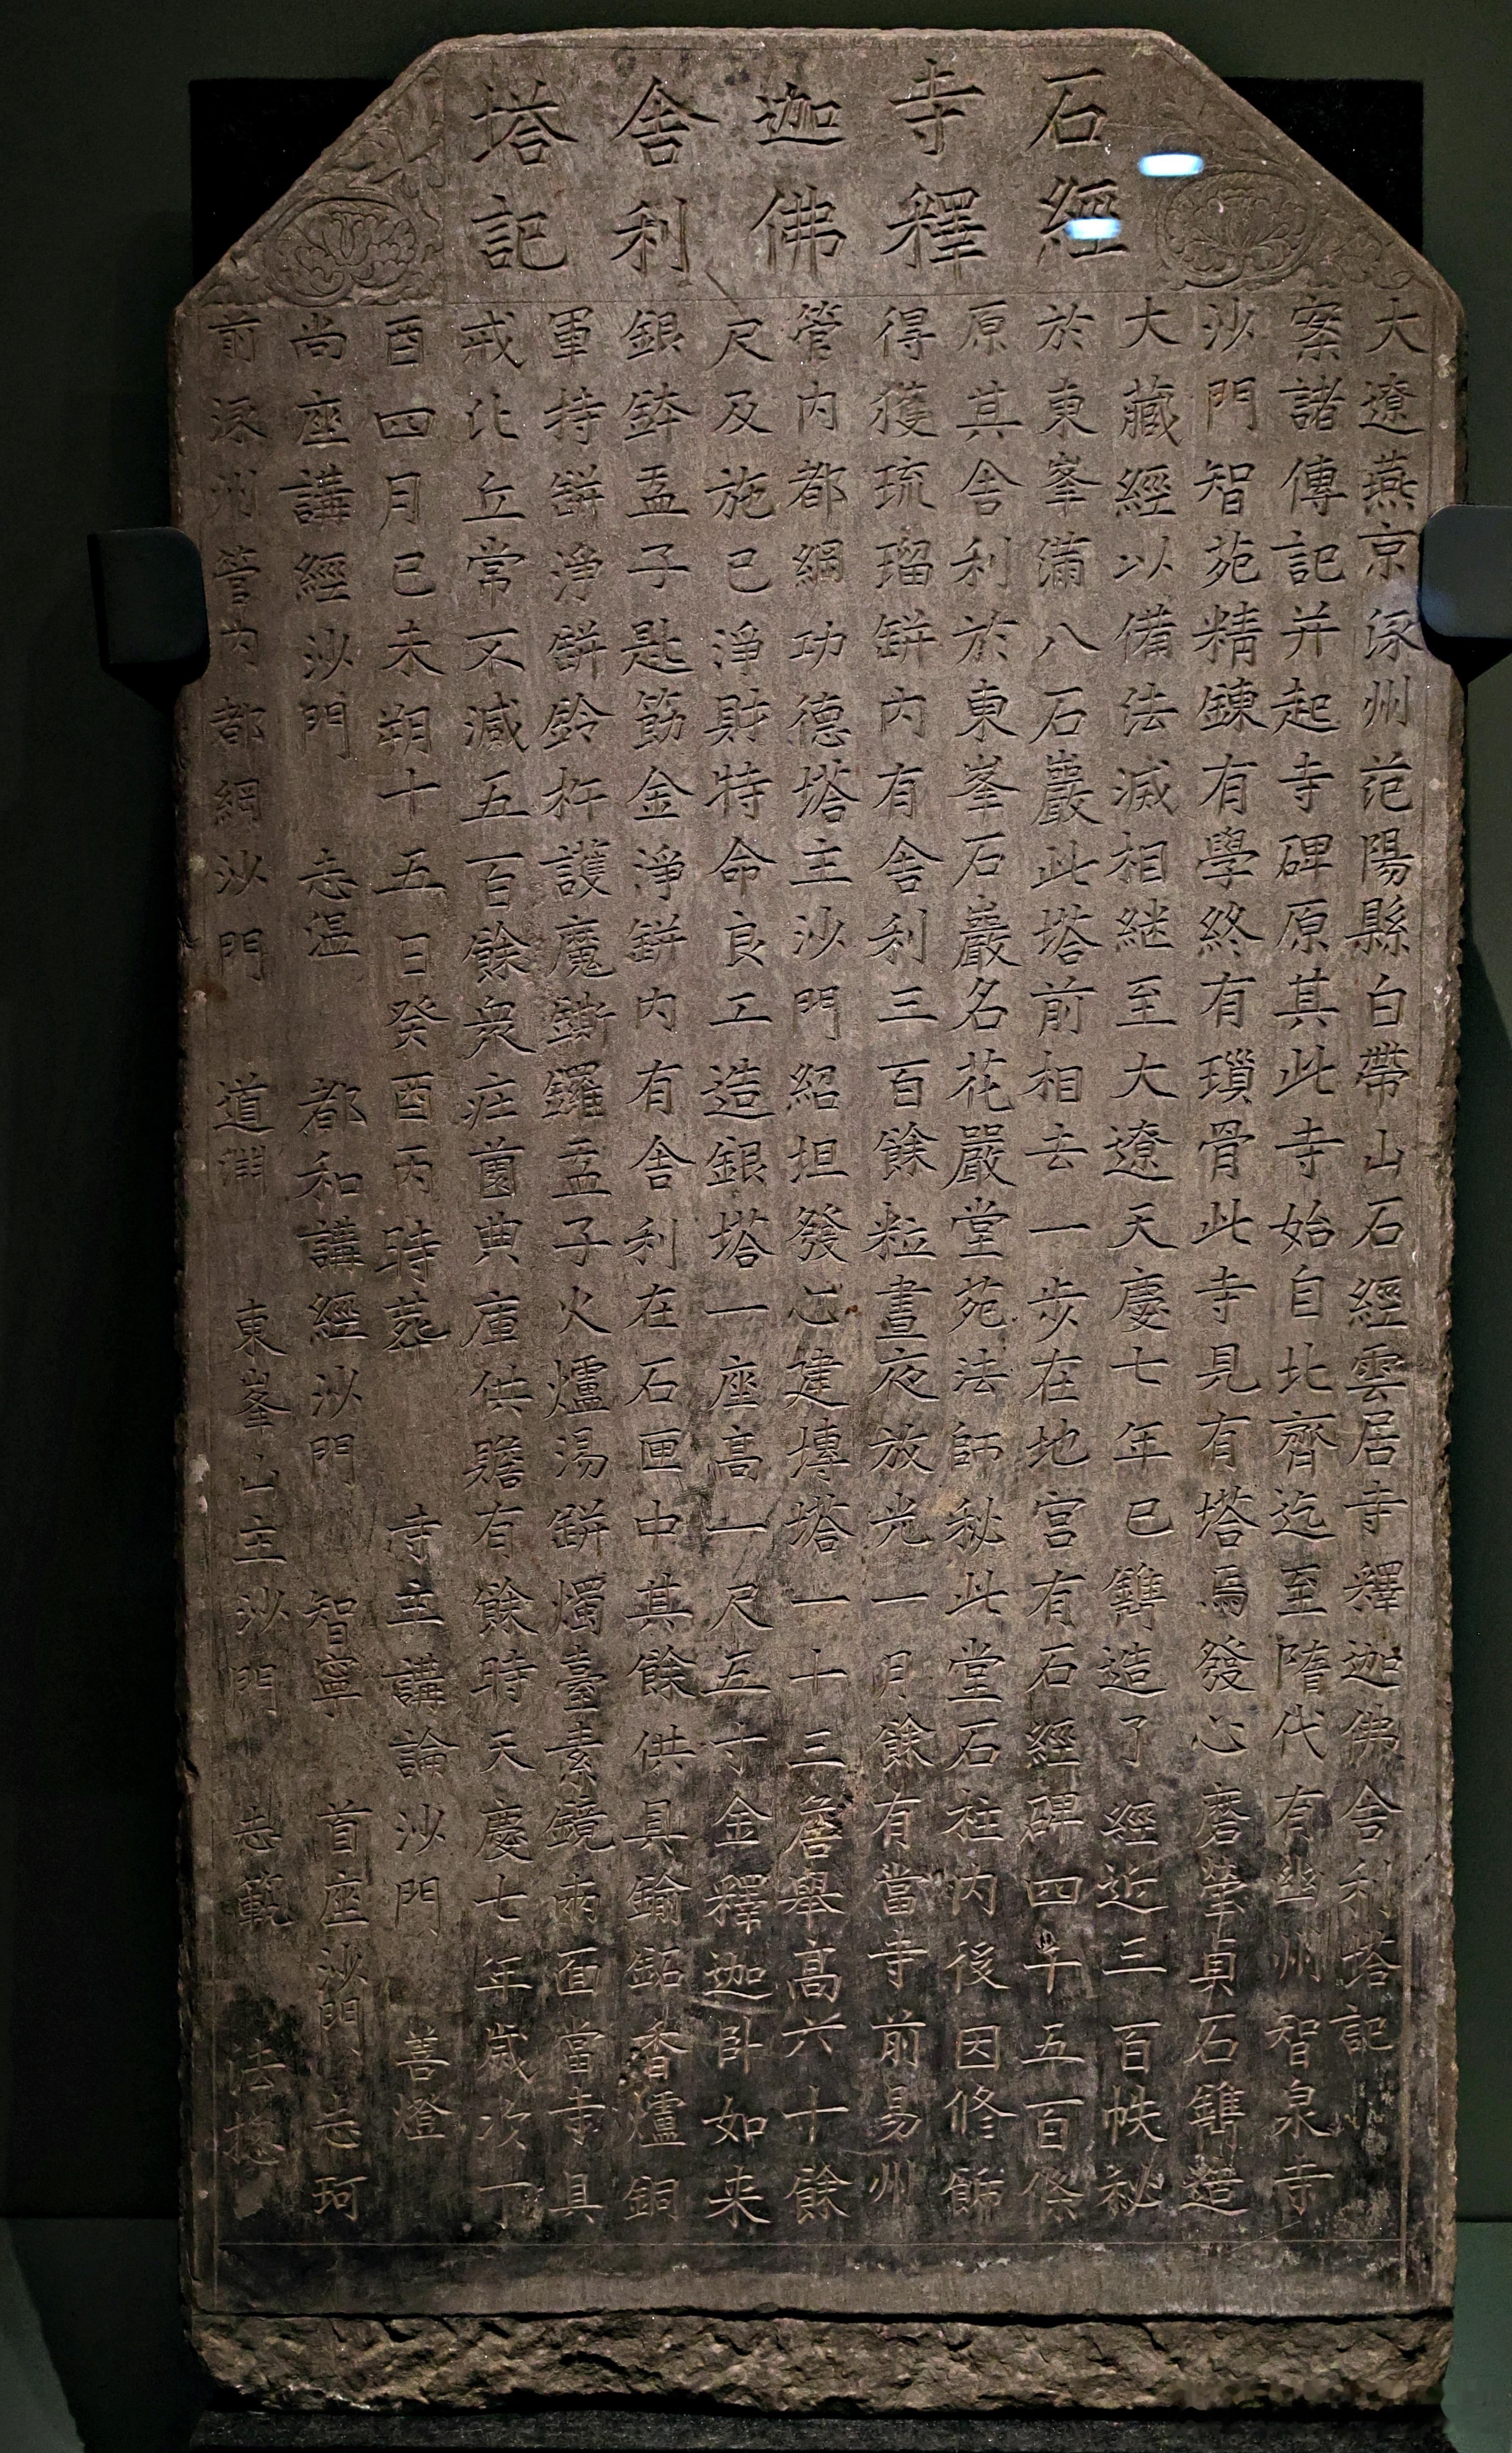 石經
寺釋
迦佛
舍利
塔記
大遼燕京涿州范陽縣白帶山石經雲居寺釋迦佛舍利塔記
案諸傳記并起寺碑原其此寺始自北齊迄至隋代有幽州智泉寺
沙門智苑精鍊有學終有瑣骨此寺見有塔焉發心磨瑩貞石鐫造
大藏經以備法滅相継至大遼天慶七年已鐫造了經近三百帙秘
於東峯滿八石巖此塔前相去一步在地宮有石經碑四千五百條
原其舍利於東峯石巖名花嚴堂苑法師秘此堂石柱内後因修飾
得獲琉瑠缾内有舍利三百餘粒晝夜放光一月餘有當寺前易州
管内都綱功德塔主沙門紹坦發心建塼塔一十三簷舉高六十餘
尺及施已淨財特命良工造銀塔一座高一尺五寸金釋迦卧如来
銀鉢盂子匙筯金淨缾内有舍利在石匣中其餘供具鍮鉐香爐銅
軍持缾淨缾鈴杵護魔鐁鑼盂子火爐湯缾燭臺素鏡兩面當寺具
戒比丘常不減五百餘衆庄薗典庫供贍有餘時天慶七年歲次丁
酉四月已未朔十五日癸酉丙時葬 寺主講論沙門 善燈
尚座講經沙門 志温 都和講經沙門 智寧 首座沙門 志珂
前涿州管内都綱沙門 道淵 東峯山主沙門 志範 法揔